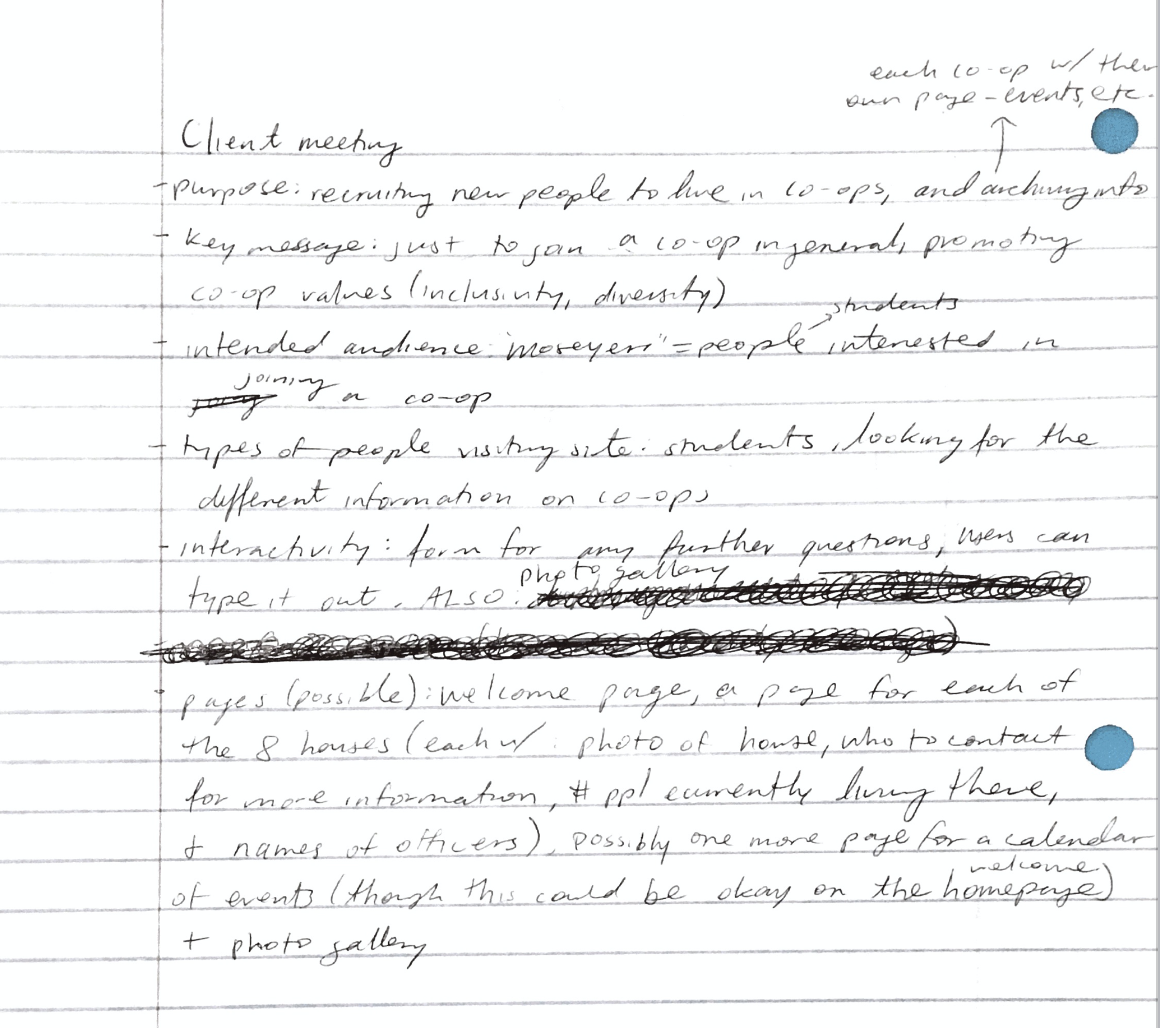 each co-op w/ their
own page - events, etc.
Client meeting
- purpose: recruiting new people to live in co-ops, and archiving into
- key message: just to join a co-op in general, promoting
co-op values (inclusivity, diversity)
students
- intended audience: "moseyers" = people interested in
joining
a co-op
- types of people visiting site: students, looking for the
different information on co-ops
- interactivity: form for any further questions, users can
photo gallery
type it out. ALSO:
- pages (possible): welcome page, a page for each of
the 8 houses (each w/: photo of house, who to contact
for more information, # ppl currently living there,
+ names of officers), possibly one more page for a calendar
welcome
of events (though this could be okay on the homepage)
+ photo gallery